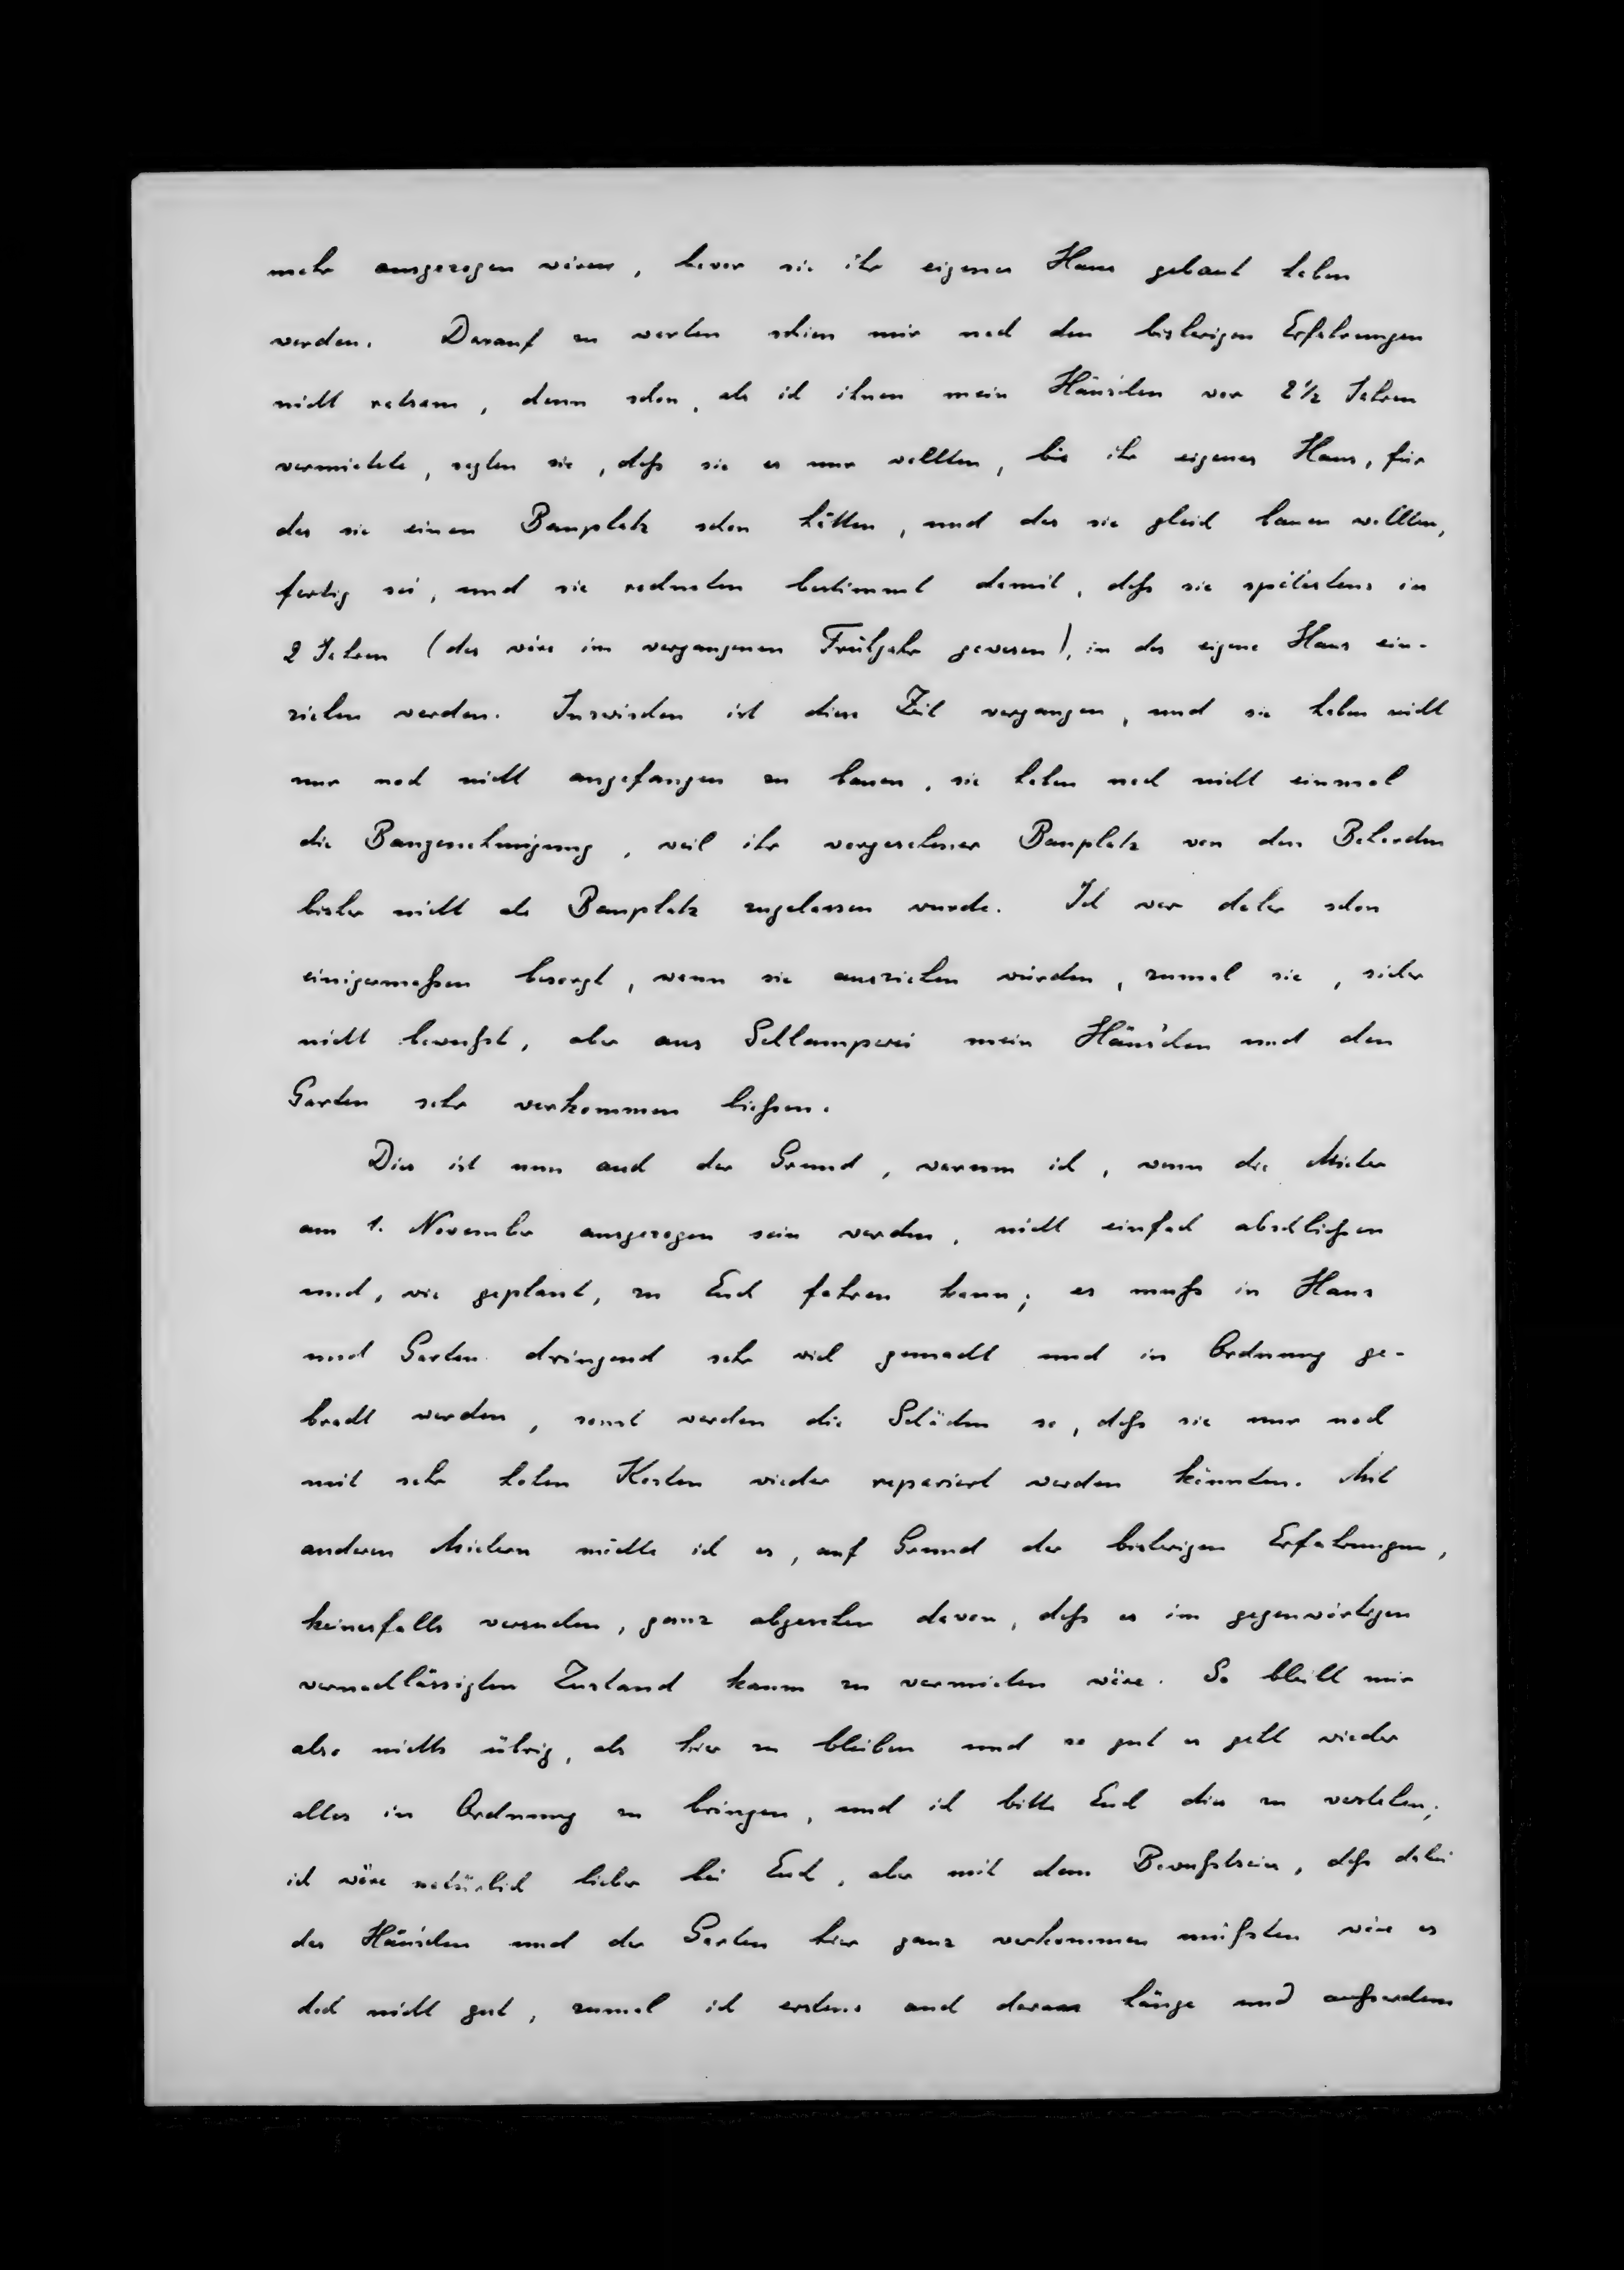 mehr ausgezogen wären, bevor sie ihr eigenes Haus gebaut haben
werden. Darauf zu warten schien mir nach den bisherigen Erfahrungen
nicht ratsam, denn schon, als ich ihnen mein Häus'chen vor 2½ Jahren
vermietete, sagten sie, daß sie es nur wollten, bis ihr eigenes Haus, für
das sie einen Bauplatz schon hätten, und das sie gleich bauen wollten,
fertig sei, und sie rechneten bestimmt damit, daß sie spätestens in
2 Jahren (das wäre im vergangenen Frühjahr gewesen), in das eigene Haus ein-
ziehen werden. Inzwischen ist diese Zeit vergangen, und sie haben nicht
nur noch nicht angefangen zu bauen, sie haben noch nicht einmal
die Baugenehmigung, weil ihr vorgesehener Bauplatz von den Behörden
bisher nicht als Bauplatz zugelassen wurde. Ich war daher schon
einigermaßen besorgt, wann sie ausziehen würden, zumal sie, sicher
nicht bewußt, aber aus Schlamperei mein Häus'chen und den
Garten sehr verkommen ließen.
Dies ist nun auch der Grund, warum ich, wenn die Mieter
am 1. November ausgezogen sein werden, nicht einfach abschließen
und, wie geplant, zu Euch fahren kann; es muß in Haus
und Garten dringend sehr viel gemacht und in Ordnung ge-
bracht werden, sonst werden die Schäden so, daß sie nur noch
mit sehr hohen Kosten wieder repariert werden könnten. Mit
anderen Mietern möchte ich es, auf Grund der bisherigen Erfahrungen,
keinesfalls versuchen, ganz abgesehen davon, daß es im gegenwärtigen
vernachlässigten Zustand kaum zu vermieten wäre. So bleibt mir
also nichts übrig, als hier zu bleiben und so gut es geht wieder
alles in Ordnung zu bringen, und ich bitte Euch dies zu verstehen;
ich wäre natürlich lieber bei Euch, aber mit dem Bewußtsein, daß dabei
das Häus'chen und der Garten hier ganz verkommen müßten wäre es
doch nicht gut, zumal ich erstens auch daran hänge und außerdem